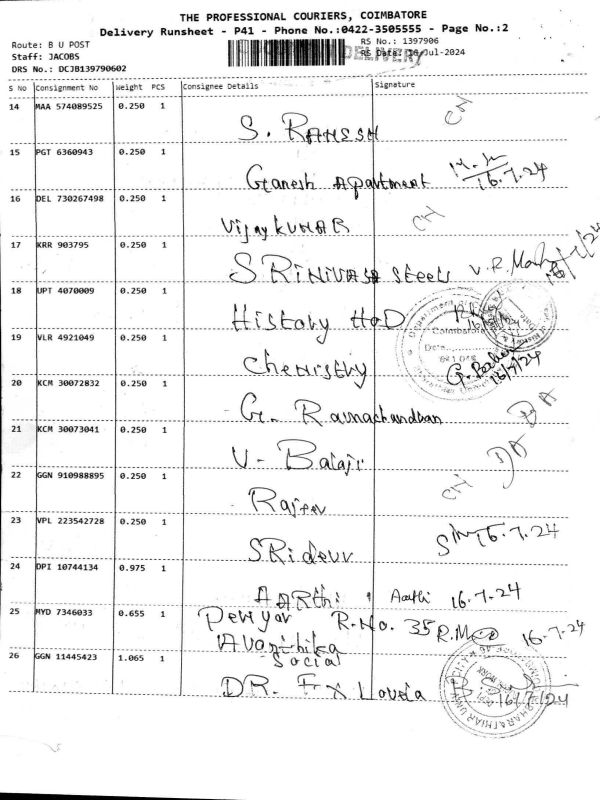 THE PROFESSIONAL COURIERS, COIMBATORE
Delivery Runsheet - P41 - Phone No.:0422-3505555 - Page No.:2
Route: B U POST
RS No.: 1397906
Staff: JACOBS
DELIVERY
RS Date: 16-Jul-2024
DRS No.: DCJB139790602
S No Consignment No Weight PCS Consignee Details Signature
14 MAA 574089525 0.250 1
S. RAMESH CH
15 PGT 6360943 0.250 1
Ganesh Apartment 16.7.24
16 DEL 730267498 0.250 1
VijayKUMAR CH
17 KRR 903795 0.250 1
SRINIVASA Steels V.R.
18 UPT 4070009 0.250 1
History HoD
19 VLR 4921049 0.250 1
Chemistry G. 16/7/24
Coimbatore
Date
20 KCM 30072832 0.250 1
G. Ramachandran DA
21 KCM 30073041 0.250 1
V- Balaji DA
22 GGN 910988895 0.250 1
Rajeev CH
23 VPL 223542728 0.250 1
SRidevi 16.7.24
24 DPI 10744134 0.975 1
AARthi Aarthi 16.7.24
25 MYD 7346033 0.655 1
Periyar R.No. 35 16.7.24
Avanthika
26 GGN 11445423 1.065 1
Social
DR. F X Lovela 16/7/24